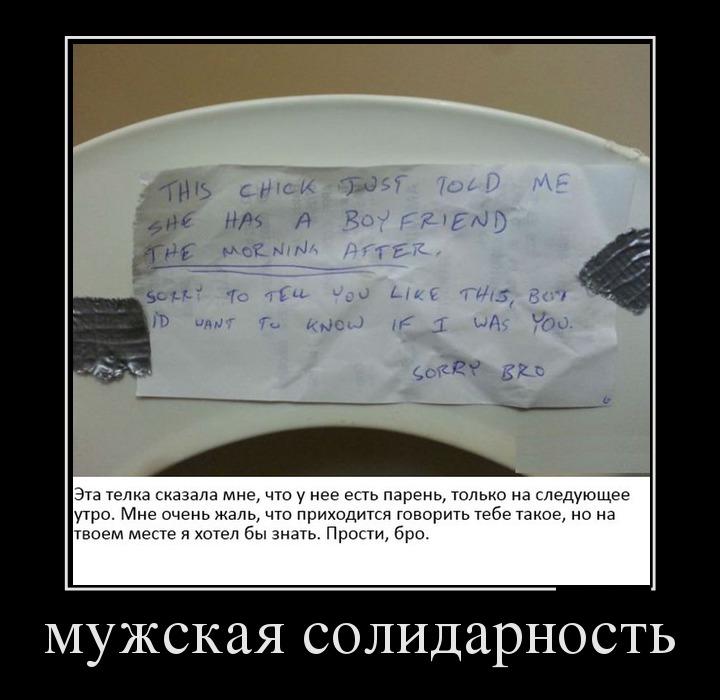 THIS CHICK JUST TOLD ME
SHE HAS A BOYFRIEND
THE MORNING AFTER.
SORRY TO TELL YOU LIKE THIS, BUT
I'D WANT TO KNOW IF I WAS YOU.
SORRY BRO
Эта телка сказала мне, что у нее есть парень, только на следующее
утро. Мне очень жаль, что приходится говорить тебе такое, но на
твоем месте я хотел бы знать. Прости, бро.
мужская солидарность